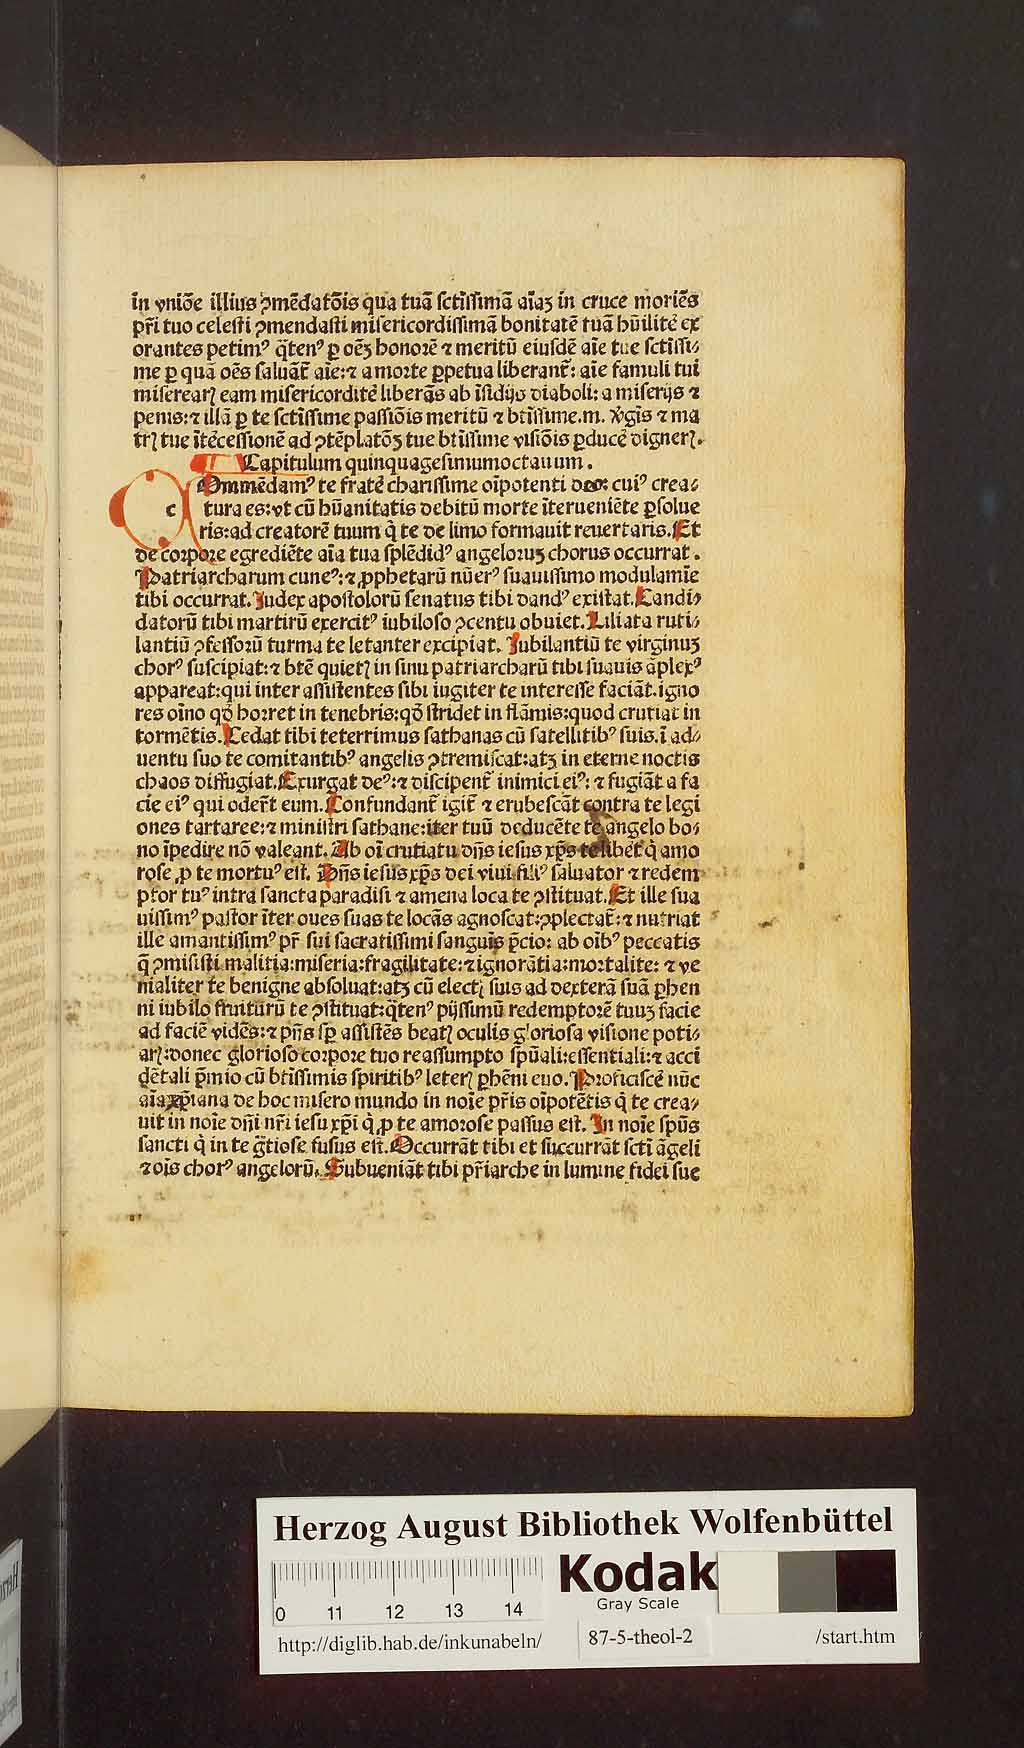 in vniõe illius ꝯmẽdatõis qua tuã ſctiſſimã aĩaꝫ in cruce moriẽs
pr̃i tuo celeſti ꝯmendaſti miſericordiſſimã bonitatẽ tuã hũilitẽ ex
orantes petimꝰ q̃tenꝰ ꝑ oẽꝫ honorẽ ⁊ meritũ eiuſdẽ aĩe tue ſctiſſi⸗
me ꝑ quã oẽs ſaluãt̃ aĩe:⁊ a morte ꝑpetua liberant̃: aĩe famuli tui
miſerearꝭ eam miſericorditẽ liberãs ab ĩſidijs diaboli: a miſerijs ⁊
penis:⁊ illã ꝑ te ſctiſſime paſſiõis meritũ ⁊ btiſſime.m. v̓gĩs ⁊ ma
trꝭ tue ĩtẽceſſionẽ ad ꝯtẽplatõꝫ tue btiſſime viſiõis ꝑducẽ dignerꝭ.
¶ Capitulum quinquageſimumoctauum.
c
Ommẽdamꝰ te fratẽ chariſſime oĩpotenti deo: cuiꝰ crea⸗
tura es:vt cũ hũanitatis debitũ morte ĩterueniẽte ꝑſolue
ris:ad creatorẽ tuum q̃ te de limo formauit reuertaris. Et
de corpore egrediẽte aĩa tua ſplẽdidꝰ angeloruꝫ chorus occurrat.
Patriarcharum cuneꝰ:⁊ ꝓphetarũ nũerꝰ ſuauiſſimo modulamĩe
tibi occurrat. Iudex apoſtolorũ ſenatus tibi dandꝰ exiſtat. Candi⸗
datorũ tibi martirũ exercitꝰ iubiloſo ꝯcentu obuiet. Liliata ruti⸗
lantiũ ꝯfeſſorũ turma te letanter excipiat. Iubilantiũ te virginuꝫ
chorꝰ ſuſcipiat:⁊ btẽ quietꝭ in ſinu patriarcharũ tibi ſuauis ãplexꝰ
appareat:qui inter aſſiſtentes ſibi iugiter te intereſſe faciãt.igno
res oĩno qd̃ horret in tenebris:qd̃ ſtridet in flãmis:quod crutiat in
tormẽtis. Cedat tibi teterrimus ſathanas cũ ſatellitibꝰ ſuis.ĩ ad⸗
uentu ſuo te comitantibꝰ angelis ꝯtremiſcat:atꝫ in eterne noctis
chaos diffugiat. Exurgat deꝰ:⁊ diſcipent̃ inimici eiꝰ: ⁊ fugiãt a fa
cie eiꝰ qui oder̃t eum. Confundant̃ igit̃ ⁊ erubeſcãt contra te legi
ones tartaree:⁊ miniſtri ſathane:iter tuũ deducẽte te angelo bo⸗
no ĩpedire nõ valeant. Ab oĩ crutiatu dñs ieſus xp̃s te libet q̃ amo
roſe ꝓ te mortuꝰ eſt. Dñs ieſus xp̃s dei viui filiꝰ ſaluator ⁊ redem
ptor tuꝰ intra ſancta paradiſi ⁊ amena loca te ꝯſtituat. Et ille ſua
uiſſimꝰ paſtor ĩter oues ſuas te locãs agnoſcat:ꝯplectat̃:⁊ nutriat
ille amantiſſimꝰ pr̃ ſui ſacratiſſimi ſanguĩs p̃cio: ab oĩbꝰ peccatis
q̃ ꝯmiſiſti malitia:miſeria:fragilitate:⁊ignorãtia:mortalitẽ: ⁊ ve
nialiter te benigne abſoluat:atꝫ cũ electꝭ ſuis ad dexterã ſuã ꝑhen
ni iubilo fruiturũ te ꝯſtituat:q̃tenꝰ pijſſimũ redemptorẽ tuuꝫ facie
ad faciẽ vidẽs:⁊ pñs ſꝑ aſſiſtẽs beatꝭ oculis glorioſa viſione poti⸗
arꝭ:donec glorioſo corpore tuo reaſſumpto ſpũali:eſſentiali:⁊ acci
dẽtali p̃mio cũ btiſſimis ſpiritibꝰ leterꝭ ꝑhẽni euo. Proficiſcẽ nũc
aĩa xp̃iana de hoc miſero mundo in noĩe pr̃is oĩpotẽtis q̃ te crea⸗
uit in noĩe dñi nr̃i ieſu xp̃i q̃ ꝓ te amoroſe paſſus eſt. In noĩe ſpũs
ſancti q̃ in te g̃tioſe fuſus eſt. Occurrãt tibi et ſuccurrãt ſcti ãgeli
⁊ oĩs chorꝰ angelorũ. Subueniãt tibi pr̃iarche in lumine fidei ſue
Herzog August Bibliothek Wolfenbüttel
0 11 12 13 14
Kodak
Gray Scale
http://diglib.hab.de/inkunabeln/
87-5-theol-2
/start.htm